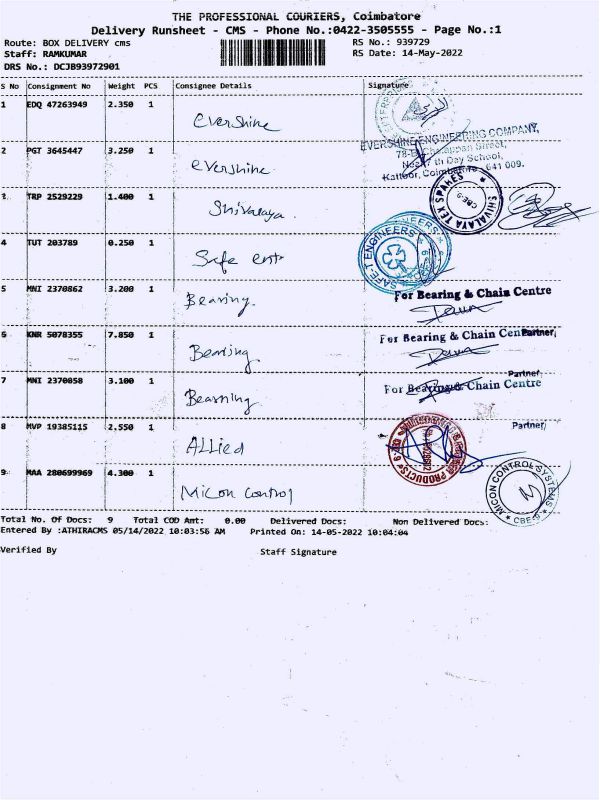 THE PROFESSIONAL COURIERS, Coimbatore
Delivery Runsheet - CMS - Phone No.:0422-3505555 - Page No.:1
Route: BOX DELIVERY cms RS No.: 939729
Staff: RAMKUMAR RS Date: 14-May-2022
DRS No.: DCJB93972901
S No Consignment No Weight PCS Consignee Details Signature
1 EDQ 47263949 2.350 1 Evershine
EVERSHINE ENGINEERING COMPANY,
2 PGT 3645447 3.250 1 evershine
7 th Day School,
Kattoor, Coimbatore - 641 009.
3 TRP 2529229 1.400 1 Shivalaya.
SHIVALAYA TEX SPARES * CBE-9 *
4 TUT 203789 0.250 1 Safe ent
SAFE-T ENGINEERS
5 MNI 2370862 3.200 1 Bearing.
For Bearing & Chain Centre
6 KNR 5078355 7.850 1 Bearing.
For Bearing & Chain Centre
Partner
7 MNI 2370858 3.100 1 Bearning.
Partner
For Bearing & Chain Centre
8 MVP 19385115 2.550 1 ALLied
Partner
PRODUCTS
9 MAA 280699969 4.300 1 Micon control
MICON CONTROL SYSTEMS * CBE-9 *
Total No. Of Docs: 9 Total COD Amt: 0.00 Delivered Docs: Non Delivered Docs:
Entered By :ATHIRACMS 05/14/2022 10:03:56 AM Printed On: 14-05-2022 10:04:04
Verified By Staff Signature